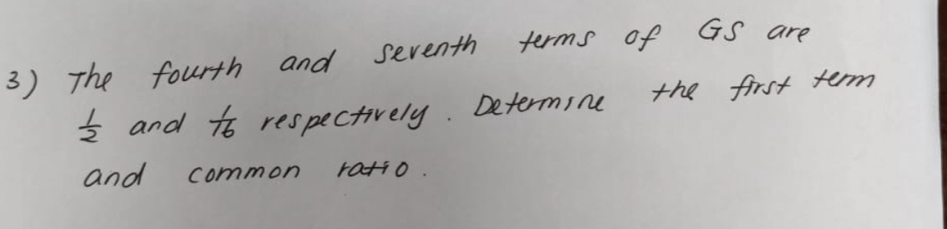 3) The fourth and seventh terms of GS are
1/2 and 1/16 respectively. Determine the first term
and common ratio.